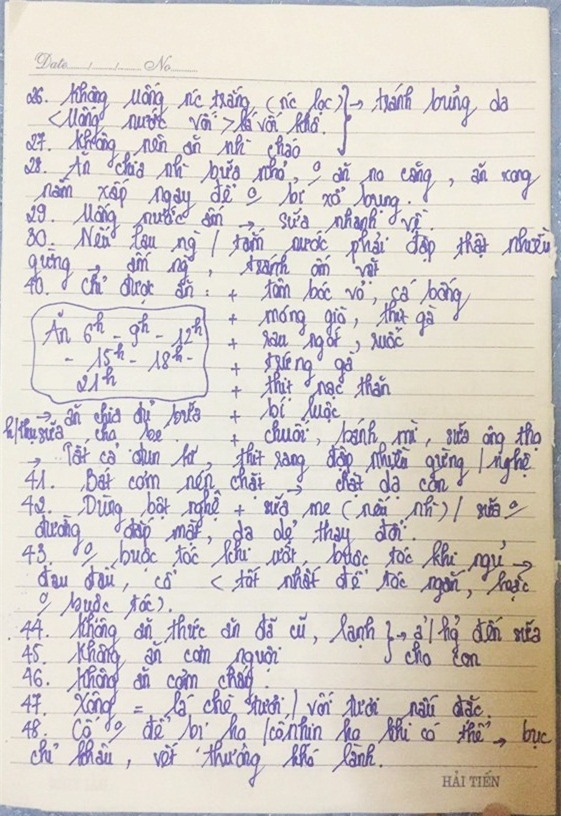 Date / / No
26. Không uống nc trắng (nc lọc) → tránh bủng da
<Uống nước vối> lá vối khô.
27. Không nên ăn nhì cháo
28. Ăn chia nhì bữa nhỏ, 0/ ăn no căng, ăn xong
nằm xấp ngay để 0/ bị xổ bụng.
29. Uống nước ấm → sữa nhanh về.
30. Nếu lau ng / tắm nước phải đập thật nhiều
gừng → ấm ng, tránh ốm vặt
40. Chỉ được ăn: + tôm bóc vỏ, cá bống
+ móng giò, thịt gà
Ăn 6h - 9h - 12h + rau ngót, ruốc
- 15h - 18h - + trứng gà
21h + thịt nạc thăn
→ ăn chia đủ bữa + bí luộc
h/thu sữa cho bé. + chuối, bánh mì, sữa ông thọ
→ Tất cả đun kĩ, thịt rang đập nhiều gừng / nghệ
41. Bát cơm nén chặt → chặt dạ con
42. Dùng bột nghệ + sữa mẹ (nếu nhì) / sữa 0/
đường đắp mặt, da dẻ thay đổi.
43. 0/ buộc tóc khi ướt, buộc tóc khi ngủ →
đau đầu, cổ < tốt nhất để tóc ngắn, hoặc
0/ buộc tóc).
44. Không ăn thức ăn đã cũ, lạnh } → ả/hg̉ đến sữa
45. Không ăn cơm nguội cho con
46. Không ăn cơm cháy
47. Xông = lá chè tươi / vối tươi nấu đặc
48. Cố 0/ để bị ho / cố nhịn ho khi có thể → bục
chỉ khâu, vết thương khó lành.
HẢI TIẾN